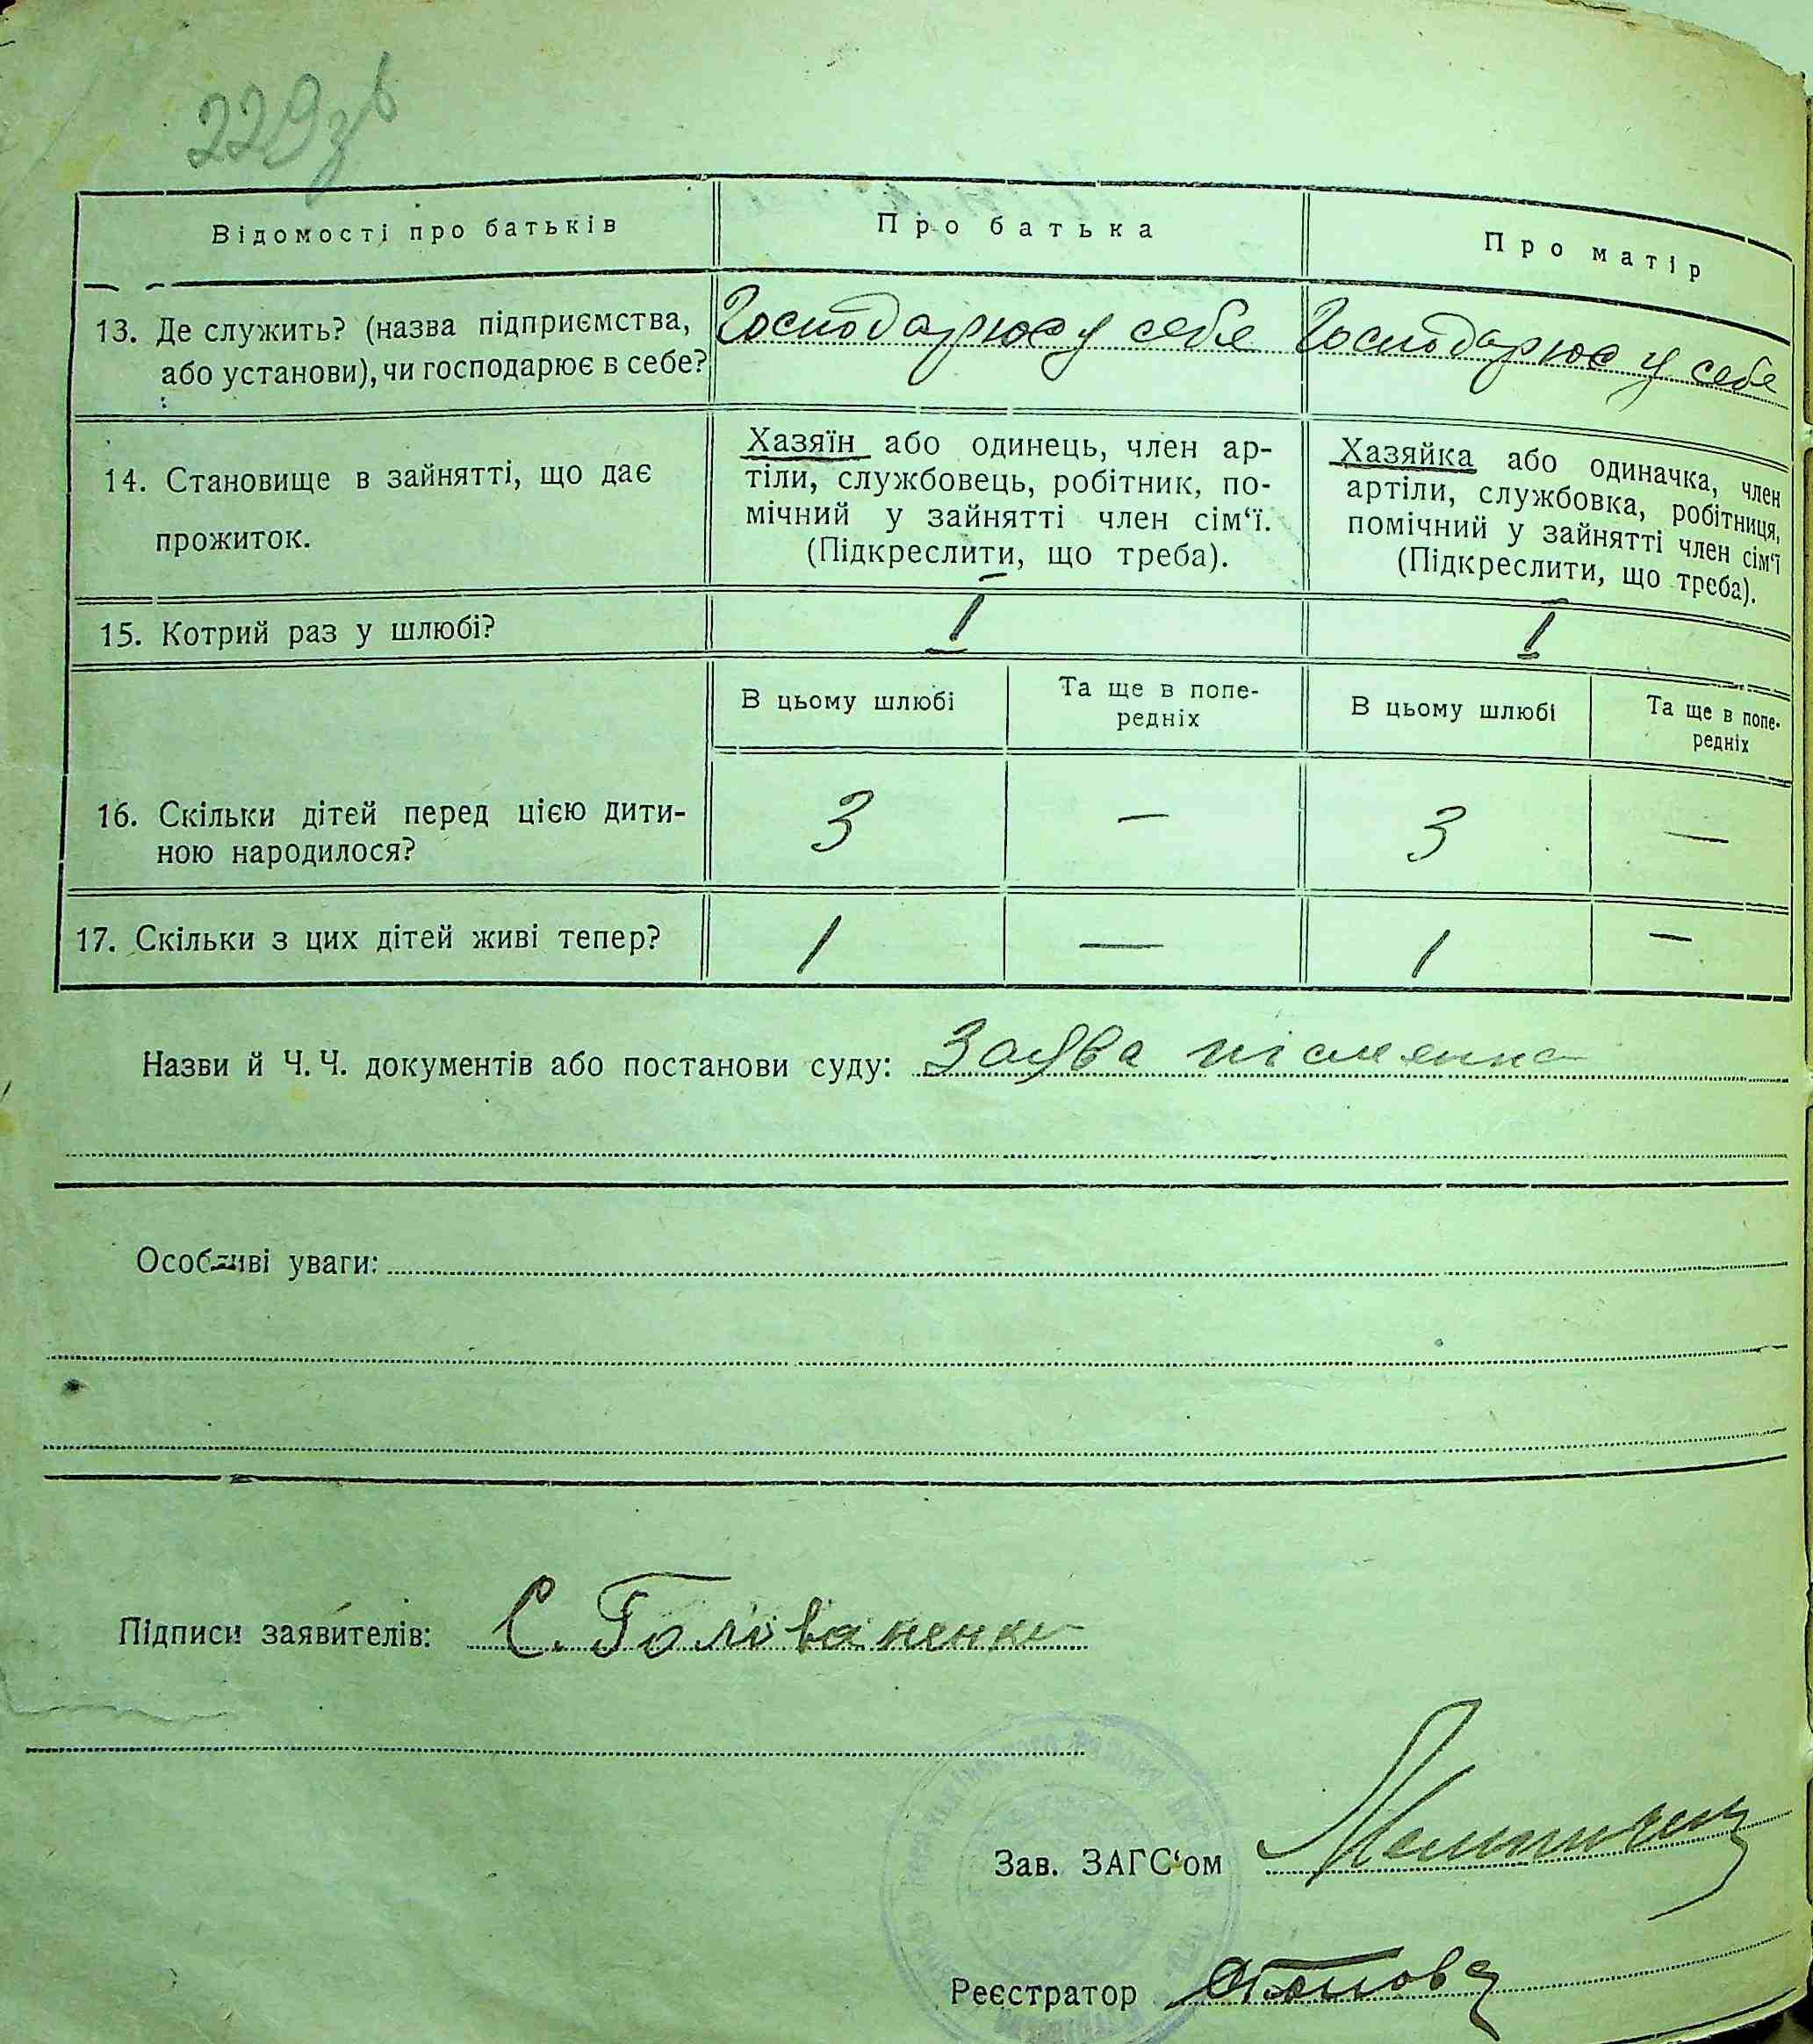 229зв
Відомості про батьків
Про батька
Про матір
13. Де служить? (назва підприємства,
або установи), чи господарює в себе?
Господарює у себе
Господарює у себе
14. Становище в зайнятті, що дає
прожиток.
Хазяїн або одинець, член ар-
тіли, службовець, робітник, по-
мічний у зайнятті член сім‘ї.
(Підкреслити, що треба).
Хазяйка або одиначка, член
артіли, службовка, робітниця,
помічний у зайнятті член сім‘ї
(Підкреслити, що треба).
15. Котрий раз у шлюбі?
I
I
В цьому шлюбі
Та ще в попе-
редніх
В цьому шлюбі
Та ще в попе-
редніх
16. Скільки дітей перед цією дити-
ною народилося?
3
—
3
—
17. Скільки з цих дітей живі тепер?
1
—
1
—
Назви й Ч. Ч. документів або постанови суду: Заява
Особливі уваги:
Підписи заявителів: С. Голованенко
Зав. ЗАГС‘ом
Реєстратор